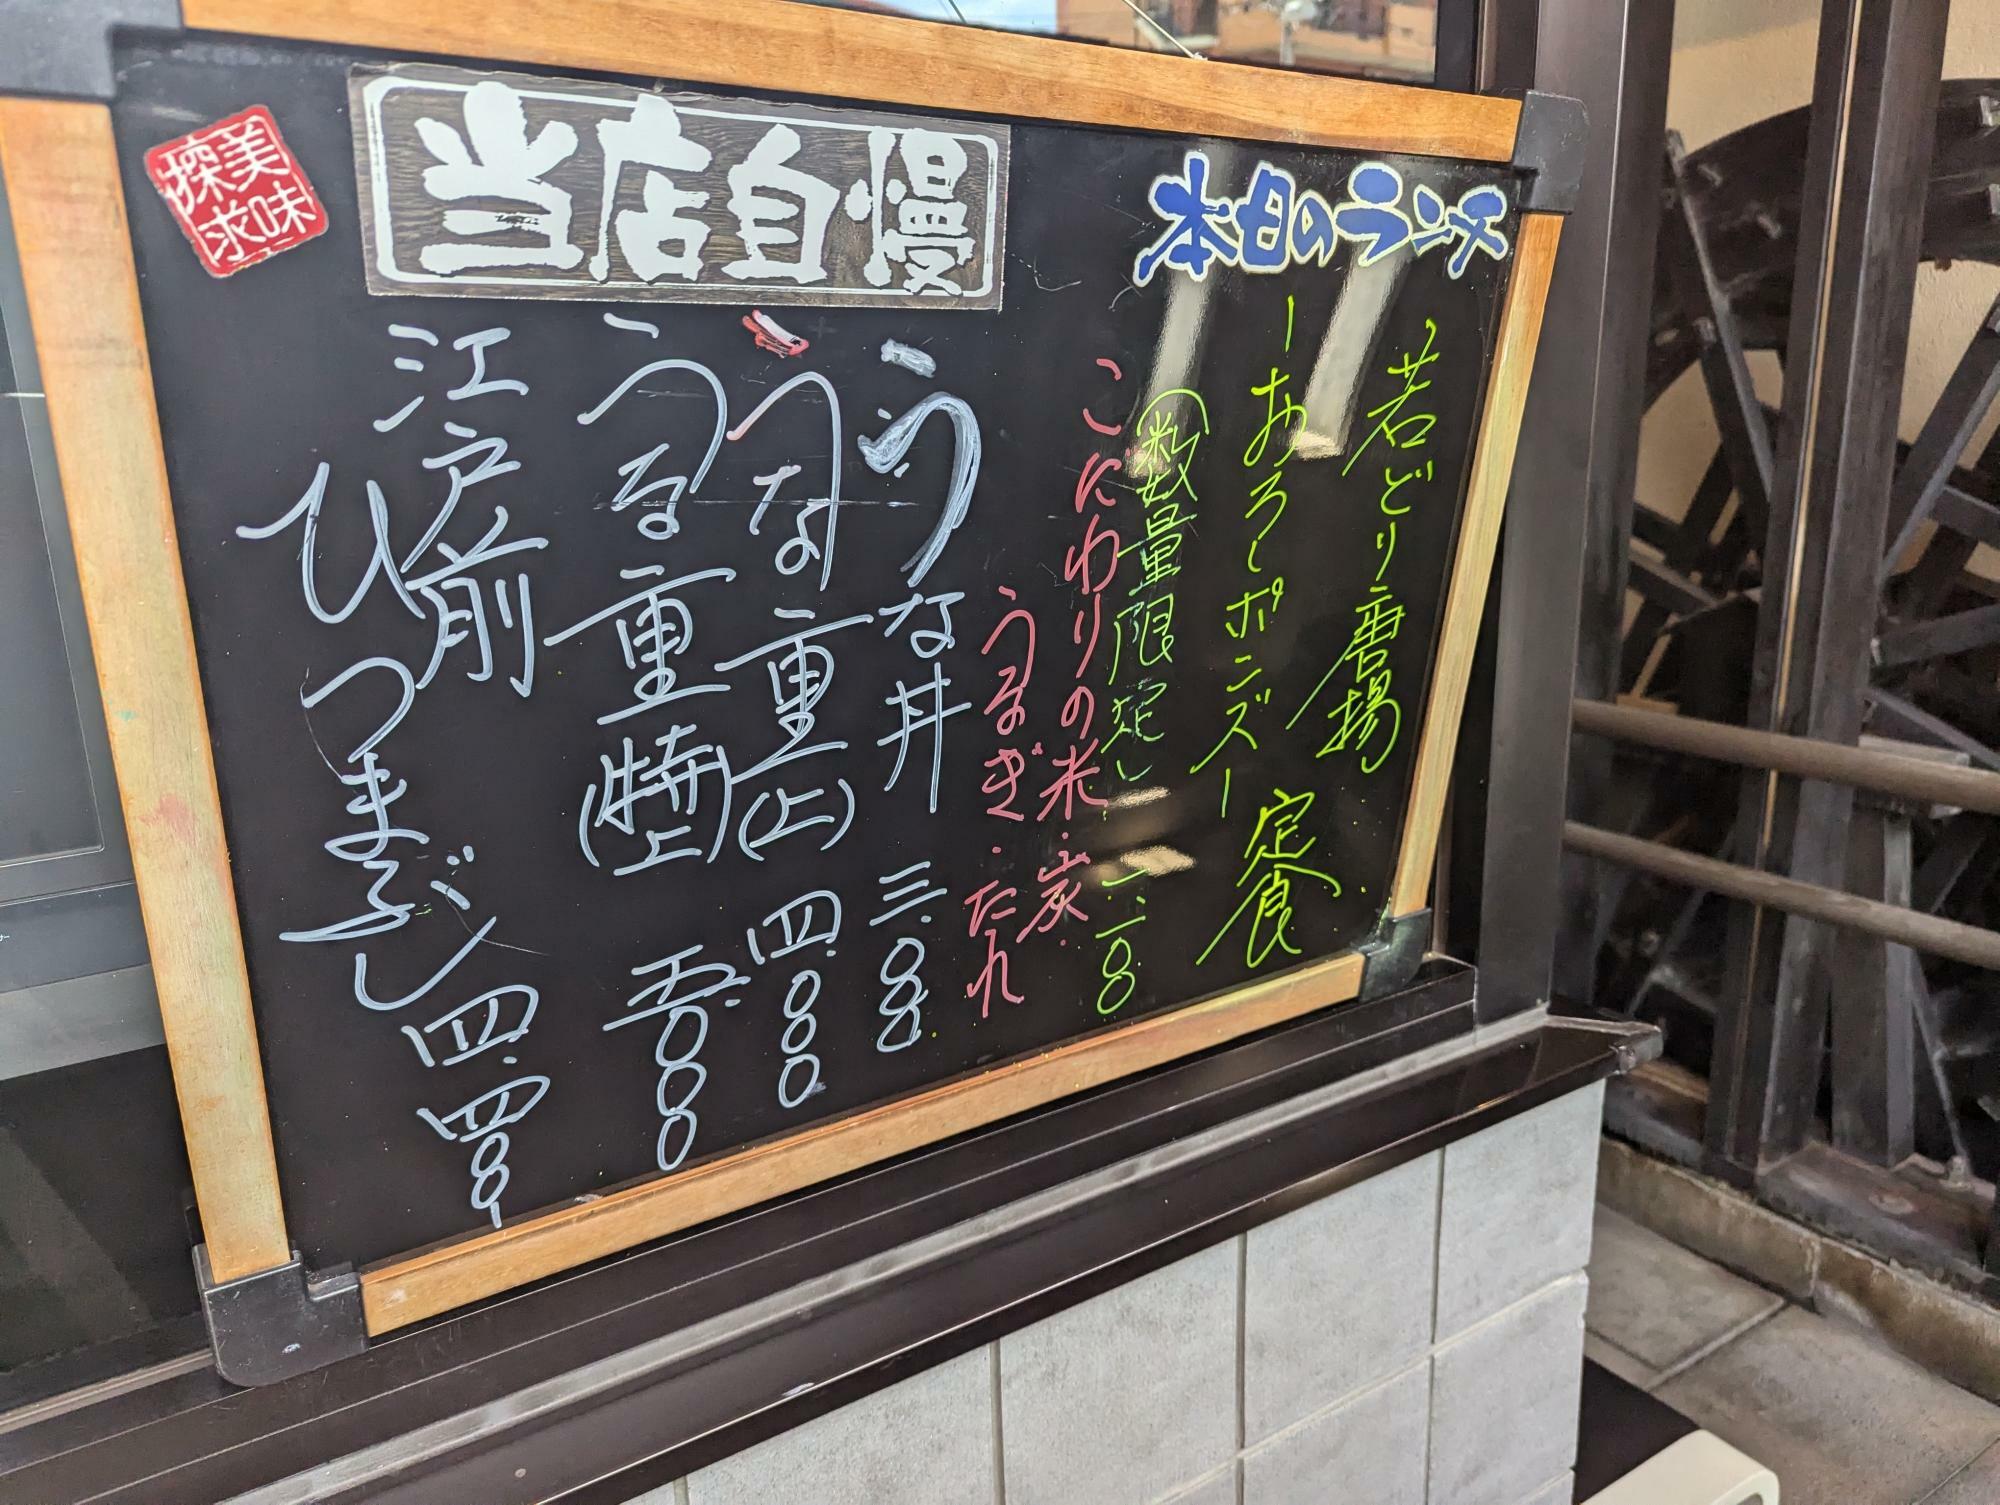 本日のランチ
若どり唐揚
ーおろしポンズー
定食
数量限定
こだわりの米・炭
うなぎ・たれ
当店自慢
うな丼 三.〇〇〇
うな重(上) 四.〇〇〇
うな重(特上) 五.〇〇〇
江戸前
ひつまぶし 四.四〇〇
美味
探求